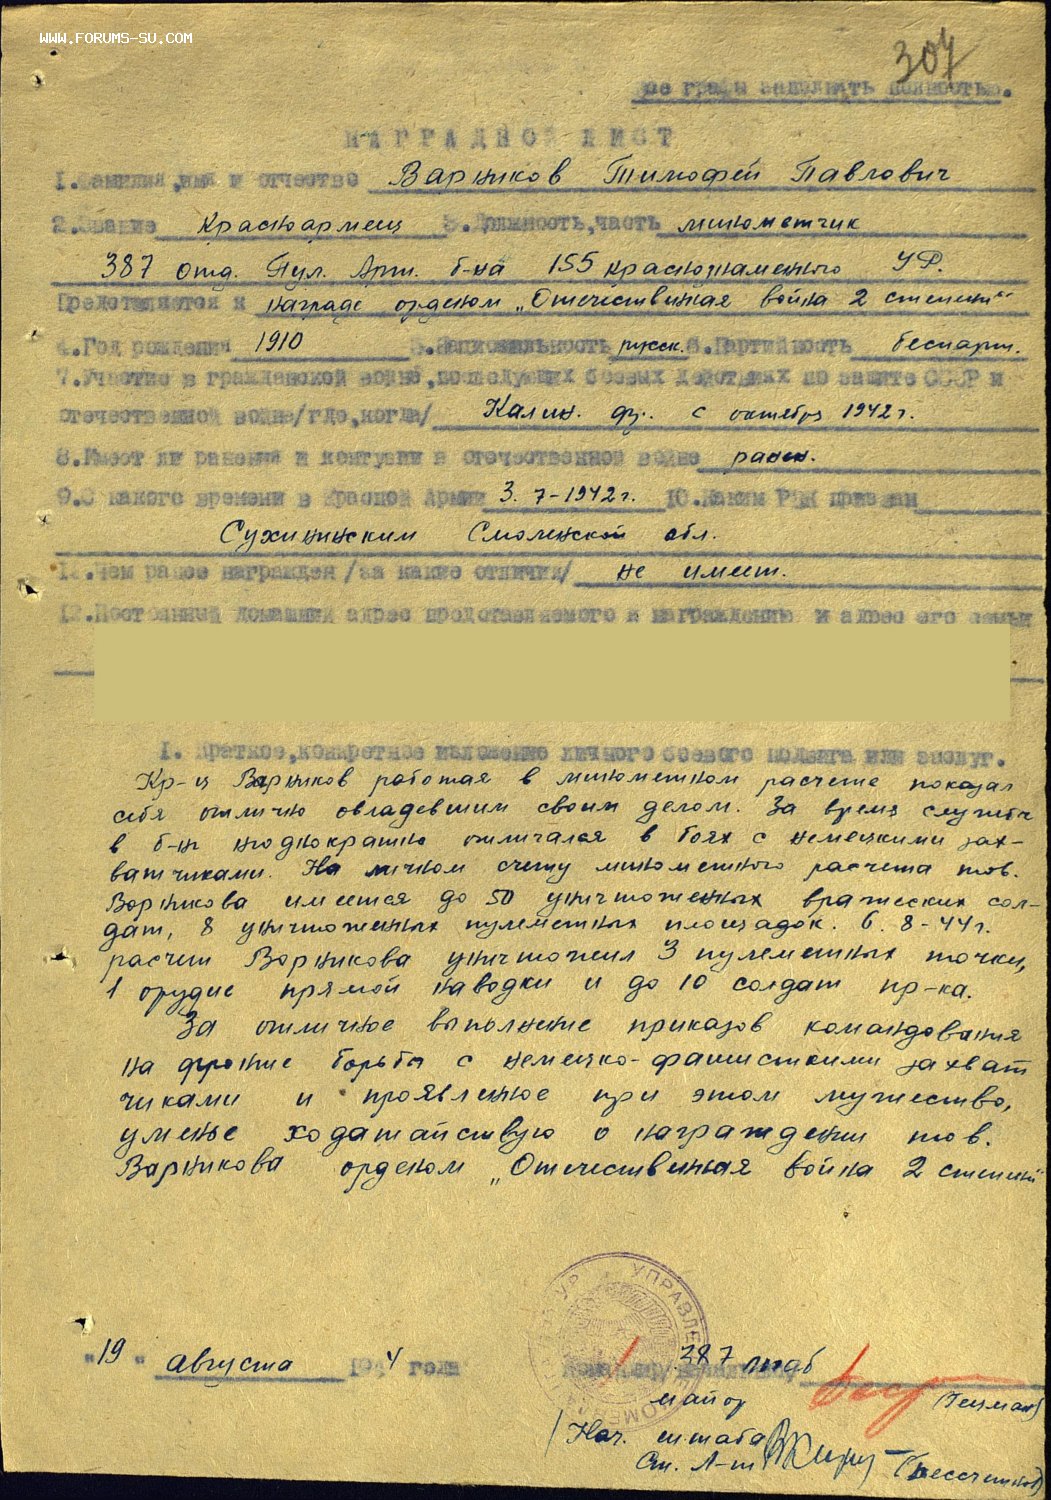 WWW.FORUMS-SU.COM
307
Все графы заполнять полностью.
НАГРАДНОЙ ЛИСТ
1.Фамилия,имя и отчество Варников Тимофей Павлович
2.Звание Красноармеец 3.Должность,часть минометчик
387 отд. Пул. Арт. б-на 155 краснознаменного УР.
Представляется к награде орденом „Отечественная война 2 степени"
4.Год рождения 1910 5.Национальность русск. 6.Партийность беспарт.
7.Участие в гражданской войне,последующих боевых действиях по защите СССР и
отечественной войне/где,когда/ Калин. фр. с октября 1942г.
8.Имеет ли ранения и контузии в отечественной войне ранен.
9.С какого времени в Красной Армии 3.7-1942г. 10.Каким РВК призван
Сухинническим Смоленской обл.
11.Чем ранее награжден/за какие отличия/ не имеет.
12.Постоянный домашний адрес представляемого к награждению и адрес его семьи
1. Краткое,конкретное изложение личного боевого подвига или заслуг.
Кр-ц Варников работая в минометном расчете показал
себя отлично овладевшим своим делом. За время службы
в б-не неоднократно отличался в боях с немецкими зах-
ватчиками. На личном счету минометного расчета тов.
Варникова имеется до 50 уничтоженных вражеских сол-
дат, 8 уничтоженных пулеметных площадок. 6.8-44г.
расчет Варникова уничтожил 3 пулеметных точки,
1 орудие прямой наводки и до 10 солдат пр-ка.
За отличное выполнение приказов командования
на фронте борьбы с немецко-фашисткими захват
чиками и проявленное при этом мужество,
уменье ходатайствую о награждении тов.
Варникова орденом „Отечественная война 2 степени"
"19" августа 1944 года Командир 387 опаб
майор (Гецман)
Нач. штаба
Ст. Л-т
УПРАВЛЕ